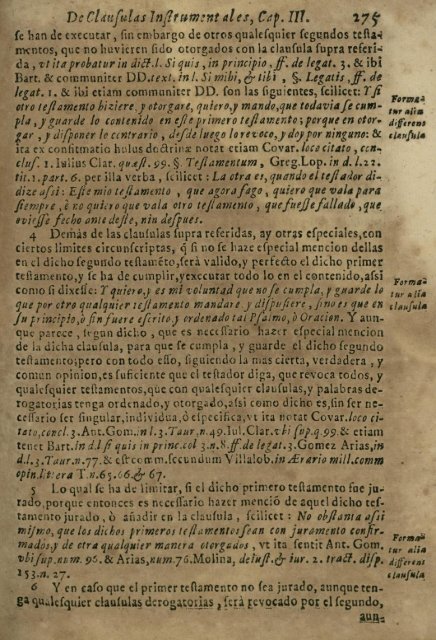 De Clausulas Instrumentales, Cap. III. 275
se han de executar, sin embargo de otros qualesquier segundos testa-
mentos, que no huvieren sido otorgados con la clausula supra referi-
da, vt ita probatur in dict. l. Si quis, in principio, ff. de legat. 3. & ibi
Bart. & communiter DD. text. in l. Si mihi, & tibi, §. Legatis, ff. de
legat. 1. & ibi etiam communiter DD. son las siguientes, scilicet: Y si
otro testamento hiziere, y otorgare, quiero, y mando, que todavia se cum-
pla, y guarde lo contenido en este primero testamento; porque en otor-
gar, y disponer lo contrario, desde luego lo revoco, y doy por ninguno: &
ita ex confirmatio huius doctrinæ notat etiam Covar. loco citato, con-
clus. 1. Iulius Clar. quæst. 99. §. Testamentum, Greg. Lop. in d. l. 22.
tit. 1. part. 6. per illa verba, scilicet: La otra es, quando el testador di-
dize assi: Este mio testamento, que agora fago, quiero que vala para
siempre, è no quiero que vala otro testamento, que fuesse fallado, que
oviesse fecho ante deste, nin despues.
4 Demàs de las clausulas supra referidas, ay otras especiales, con
ciertos limites circunscriptas, q̃ si no se haze especial mencion dellas
en el dicho segundo testamẽto, serà valido, y perfecto el dicho primer
testamento, y se ha de cumplir, y executar todo lo en el contenido, assi
como si dixesse: Y quiero, y es mi voluntad que no se cumpla, y guarde lo
que por otro qualquier testamento mandare, y dispusiere, sino es que en
su principio, ò fin fuere escrito, y ordenado tal Psalmo, ò Oracion. Y aun-
que parece, segun dicho, que es necessario hazer especial mencion
de la dicha clausula, para que se cumpla, y guarde el dicho segundo
testamento; pero con todo esso, siguiendo la mas cierta, verdadera, y
comun opinion, es suficiente que el testador diga, que revoca todos, y
qualesquier testamentos, que con qualesquier clausulas, y palabras de-
rogatorias tenga ordenado, y otorgado, assi como dicho es, sin ser ne-
cessario ser singular, individua, ò especifica, vt ita notat Covar. loco ci-
tato, concl. 3. Ant. Gom. in l. 3. Taur. n. 49. Iul. Clar. vbi sup. q. 99. & etiam
tenet Bart. in d. l. si quis in princ. col. 3. n. 8. ff. de legat. 3. Gomez Arias, in
d. l. 3. Taur. n. 77. & est comm. secundum Villalob. in Ærario mill. comm
opin. litera T. n. 65. 66. & 67.
5 Lo qual se ha de limitar, si el dicho primero testamento fue ju-
rado, porque entonces es necessario hazer menciò de aquel dicho tes-
tamento jurado, ò añadir en la clausula, scilicet: No obstante assi
mismo, que los dichos primeros testamentos sean con juramento confir-
mados, y de otra qualquier manera otorgados, vt ita sentit Ant. Gom.
vbi sup. num. 96. & Arias, num. 76. Molina, de iust. & iur. 2. tract. disp.
153. n. 27.
6 Y en caso que el primer testamento no sea jurado, aunque ten-
ga qualesquier clausulas derogatorias, serà revocado por el segundo,
aun-
Forma-
tur alia
differens
clausula
Forma-
tur alia
clausula
Forma-
tur alia
differens
clausula